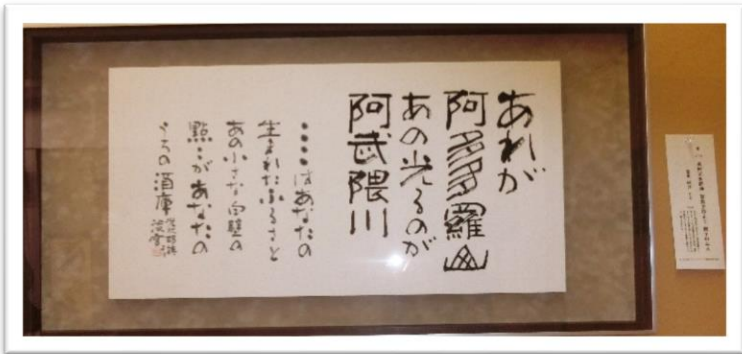 あれが
阿多多羅山
あの光るのが
阿武隈川
・・・・はあなたの
生まれたふるさと
あの小さな白壁の
點々があなたの
うちの酒庫